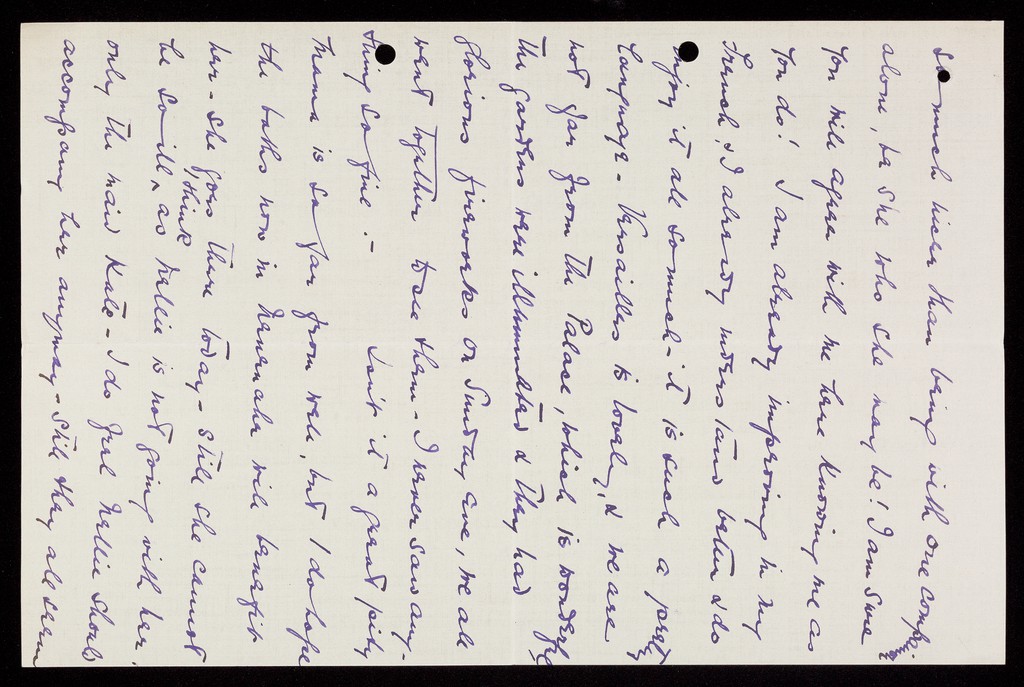 so much nicer than being with one companion
alone, be she who she may be! I am sure
you will agree with me here knowing me as
you do! I am already improving in my
French, & I already understand better & do
enjoy it all so much - it is such a pretty
language. Versailles is lovely, & we are
not far from the Palace, which is wonderful
The gardens were illuminated & they had
glorious fireworks on Sunday eve, we all
went together to see them - I never saw any-
thing so fine! - Isn't it a great pity
Mama is so far from well, but I do hope
the baths now in will benefit
her - she goes there today - still she cannot
be so ill, I think, as Nellie is not going with her.
only the maid Kate - I do feel Nellie should
accompany her anyway - still they all seem